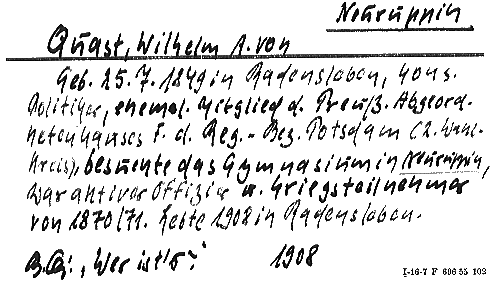 Neuruppin
Quast, Wilhelm A. von
Geb. 25. 7. 1849 in Radensleben, kons.
Politiker, ehemal. Mitglied d. Preuß. Abgeord-
netenhauses f. d. Reg.-Bez. Potsdam (2. Wahl-
kreis), besuchte das Gymnasium in Neuruppin,
war aktiver Offizier u. Kriegsteilnehmer
von 1870/71. Lebte 1908 in Radensleben.
"Wer ist's?" 1908
I-16-7 F 606 55 102